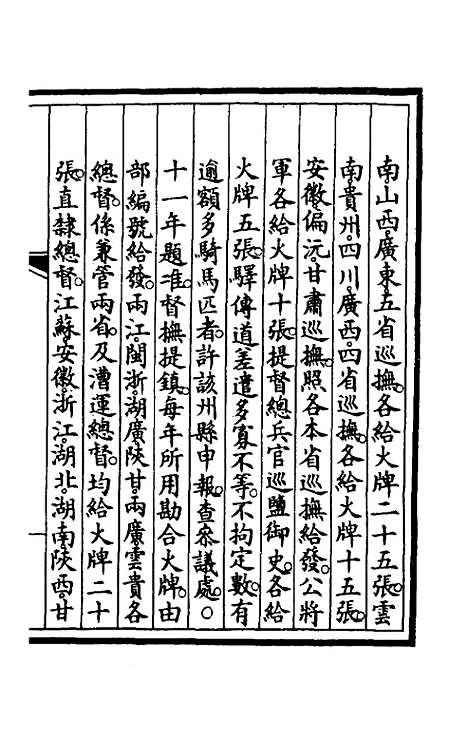 南山西。廣東。五省巡撫。各給火牌二十五張。雲
南。貴州。四川。廣西。四省巡撫。各給火牌十五張。
安徽。偏沅。甘肅巡撫。照各本省巡撫給發。公將
軍各給火牌十張。提督總兵官巡鹽御史。各給
火牌五張。驛傳道差遣多寡不等。不拘定數。有
逾額多騎馬匹者。許該州縣申報。查叅議處。○
十一年題准。督撫提鎮。每年所用勘合火牌。由
部編號給發。兩江。閩浙。湖廣。陝甘。兩廣。雲貴各
總督。係兼管兩省。及漕運總督。均給火牌二十
張。直隸總督。江蘇。安徽。浙江。湖北。湖南。陝西。甘